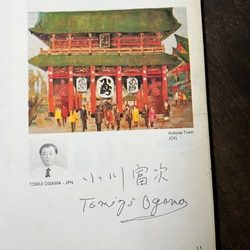 Kofutai Town
(Oil)
TOMIJI OGAWA - JPN
小川富次
Tomiji Ogawa